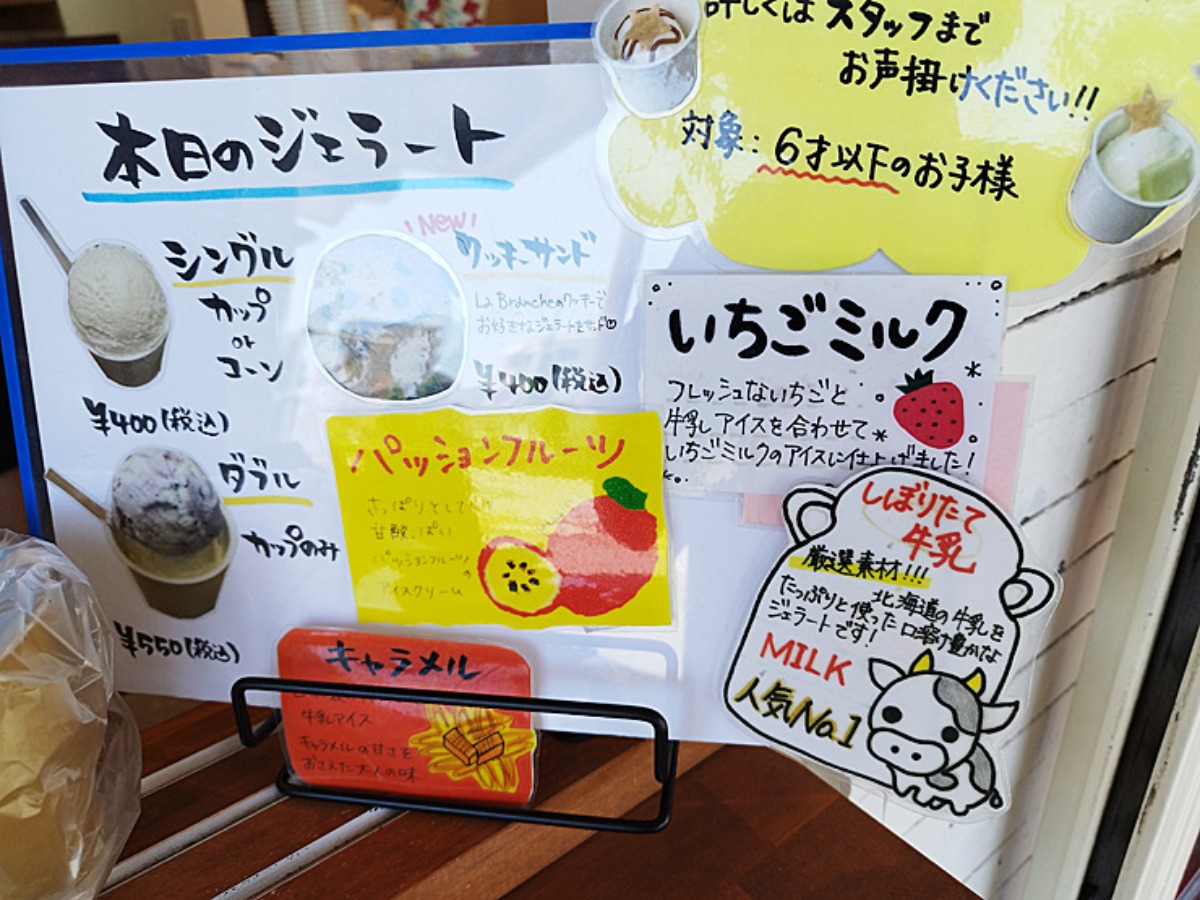 本日のジェラート
シングル
カップ
or
コーン
¥400(税込)
ダブル
カップのみ
¥550(税込)
New
クッキーサンド
La Brancheのクッキーで
お好きなジェラートをサンド♡
¥400(税込)
詳しくはスタッフまで
お声掛けください!!
対象:6才以下のお子様
いちごミルク
フレッシュないちごと
牛乳アイスを合わせて
いちごミルクのアイスに仕上げました!
パッションフルーツ
さっぱりとして
甘酸っぱい
パッションフルーツ
の
アイスクリーム
しぼりたて
牛乳
厳選素材!!!
北海道の牛乳を
たっぷりと使った口溶け豊かな
ジェラートです!
MILK
人気No.1
キャラメル
牛乳アイス
キャラメルの甘さを
おさえた大人の味